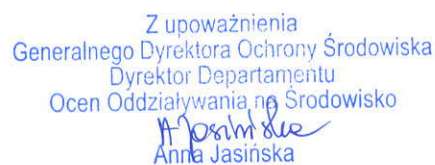 Z upoważnienia
Generalnego Dyrektora Ochrony Środowiska
Dyrektor Departamentu
Ocen Oddziaływania na Środowisko
A Jasińska
Anna Jasińska